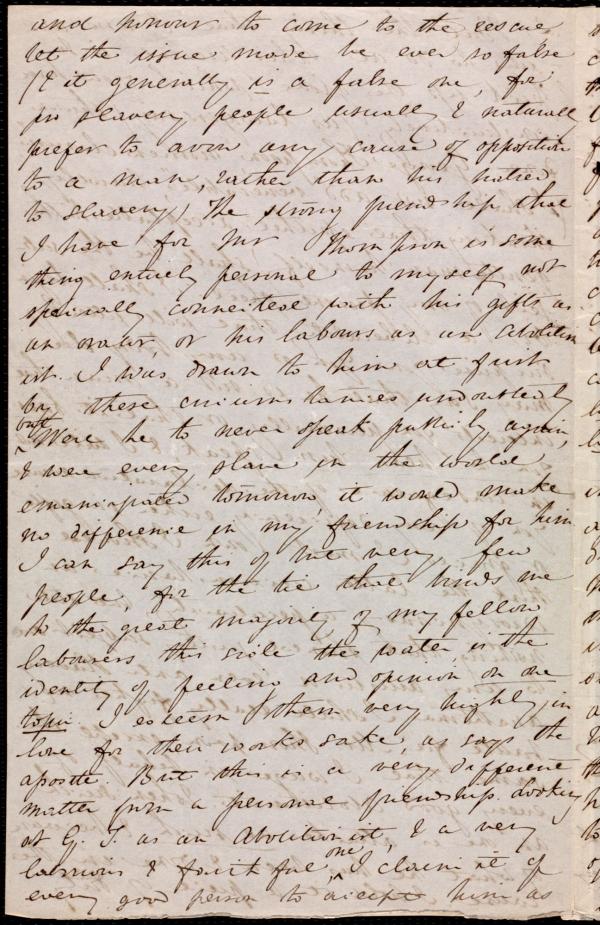 and honour to come to the rescue
let the issue made be ever so false
(& it generally is a false one, for
pro slavery people usually & naturally
prefer to avow any cause of opposition
to a man, rather than his hatred
to slavery) The strong friendship that
I have for Mr Thompson is some
thing entirely personal to myself not
specially connected with his gifts as
an orator, or his labours as an abolition
ist. I was drawn to him at first
by these circumstances undoubtedly
but
Were he to never speak publicly again,
& were every slave in the world
emancipated tomorrow it would make
no difference in my friendship for him
I can say this of but very few
people, for the tie that binds me
to the great majority of my fellow
labourers this side the water, is the
identity of feeling and opinion on one
topic. I esteem them very highly in
love for their works sake, as says the
apostle. But this is a very different
matter from a personal friendship. Looking
at G. T. as an Abolitionist, & a very
laborious & faithful one, I claim it of
every good person to accept him as